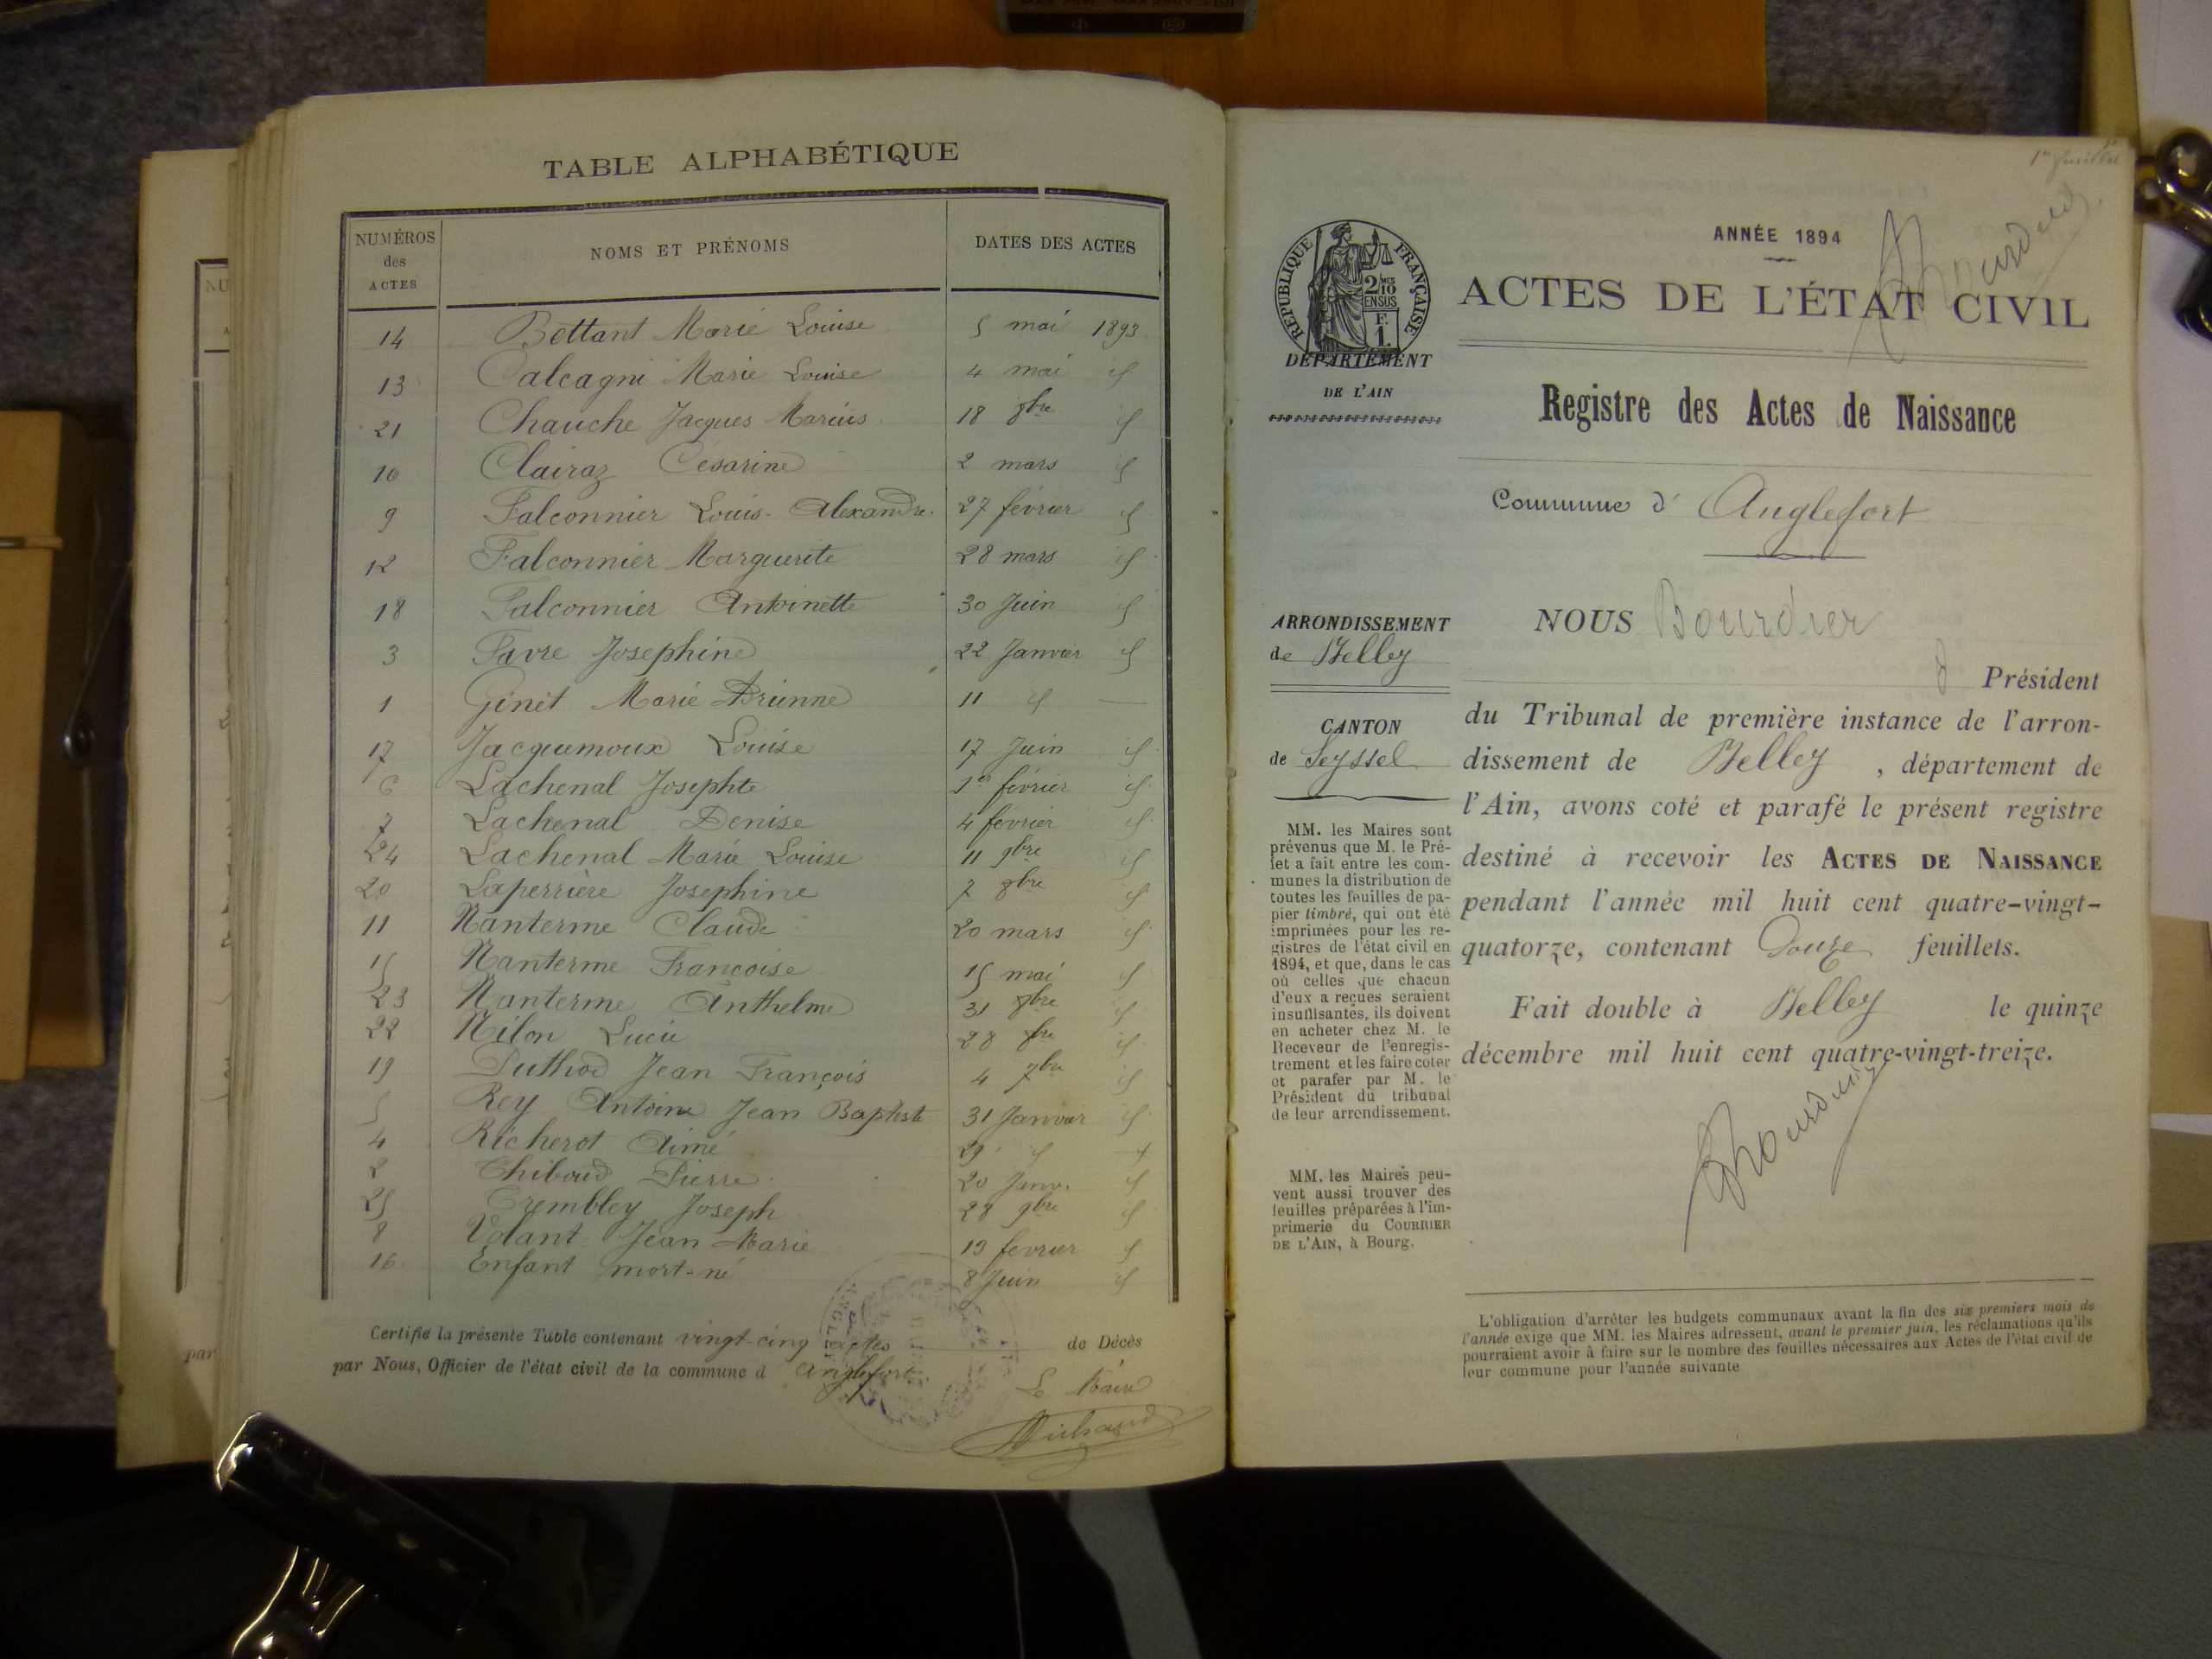 TABLE ALPHABÉTIQUE
NUMÉROS des ACTES
NOMS ET PRÉNOMS
DATES DES ACTES
14 Bettant Marie Louise 5 mai 1893
13 Calcagni Marie Louise 4 mai id
21 Chauche Jacques Marius 18 8bre id
10 Clairaz Césarine 2 mars id
9 Falconnier Louis Alexandre 27 février id
12 Falconnier Marguerite 28 mars id
18 Falconnier Antoinette 30 Juin id
3 Favre Josephine 22 Janvier id
1 Ginet Marie 11 id —
17 Jacquemoux Louise 17 Juin id
6 Lachenal Josephte 1er février id
7 Lachenal Denise 4 février id
24 Lachenal Marie Louise 11 9bre id
20 Laperrière Josephine 7 8bre id
11 Nanterme Claude 20 mars id
15 Nanterme Françoise 15 mai id
23 Nanterme Anthelme 31 8bre id
22 Nilon Lucie 28 8bre id
19 Puthod Jean François 4 7bre id
5 Rey Antoine Jean Baptiste 31 Janvier id
4 Richerot Aimé 29 id
2 Thiboud Pierre 20 Janv. id
25 Trembley Joseph 28 9bre id
8 Volant Jean Marie 19 fevrier id
16 Enfant mort-né 8 Juin id
Certifié la présente Table contenant vingt-cinq actes de Décès
par Nous, Officier de l'état civil de la commune d'Anglefort
Le Maire
NU
par
1er feuillet
ANNÉE 1894
RÉPUBLIQUE FRANÇAISE
2/10 MES
EN SUS
F.
1.
ACTES DE L'ÉTAT CIVIL
DÉPARTEMENT
DE L'AIN
Registre des Actes de Naissance
Commune d' Anglefort
ARRONDISSEMENT
de Belley
CANTON
de Seyssel
NOUS Bourdier
Président
du Tribunal de première instance de l'arron-
dissement de Belley, département de
l'Ain, avons coté et parafé le présent registre
destiné à recevoir les ACTES DE NAISSANCE
pendant l'année mil huit cent quatre-vingt-
quatorze, contenant Douze feuillets.
Fait double à Belley le quinze
décembre mil huit cent quatre-vingt-treize.
Bourdier
MM. les Maires sont
prévenus que M. le Pré-
fet a fait entre les com-
munes la distribution de
toutes les feuilles de pa-
pier timbré, qui ont été
imprimées pour les re-
gistres de l'état civil en
1894, et que, dans le cas
où celles que chacun
d'eux a reçues seraient
insuffisantes, ils doivent
en acheter chez M. le
Receveur de l'enregis-
trement et les faire coter
et parafer par M. le
Président du tribunal
de leur arrondissement.
MM. les Maires peu-
vent aussi trouver des
feuilles préparées à l'im-
primerie du COURRIER
DE L'AIN, à Bourg.
L'obligation d'arrêter les budgets communaux avant la fin des six premiers mois de
l'année exige que MM. les Maires adressent, avant le premier juin, les réclamations qu'ils
pourraient avoir à faire sur le nombre des feuilles nécessaires aux Actes de l'état civil de
leur commune pour l'année suivante